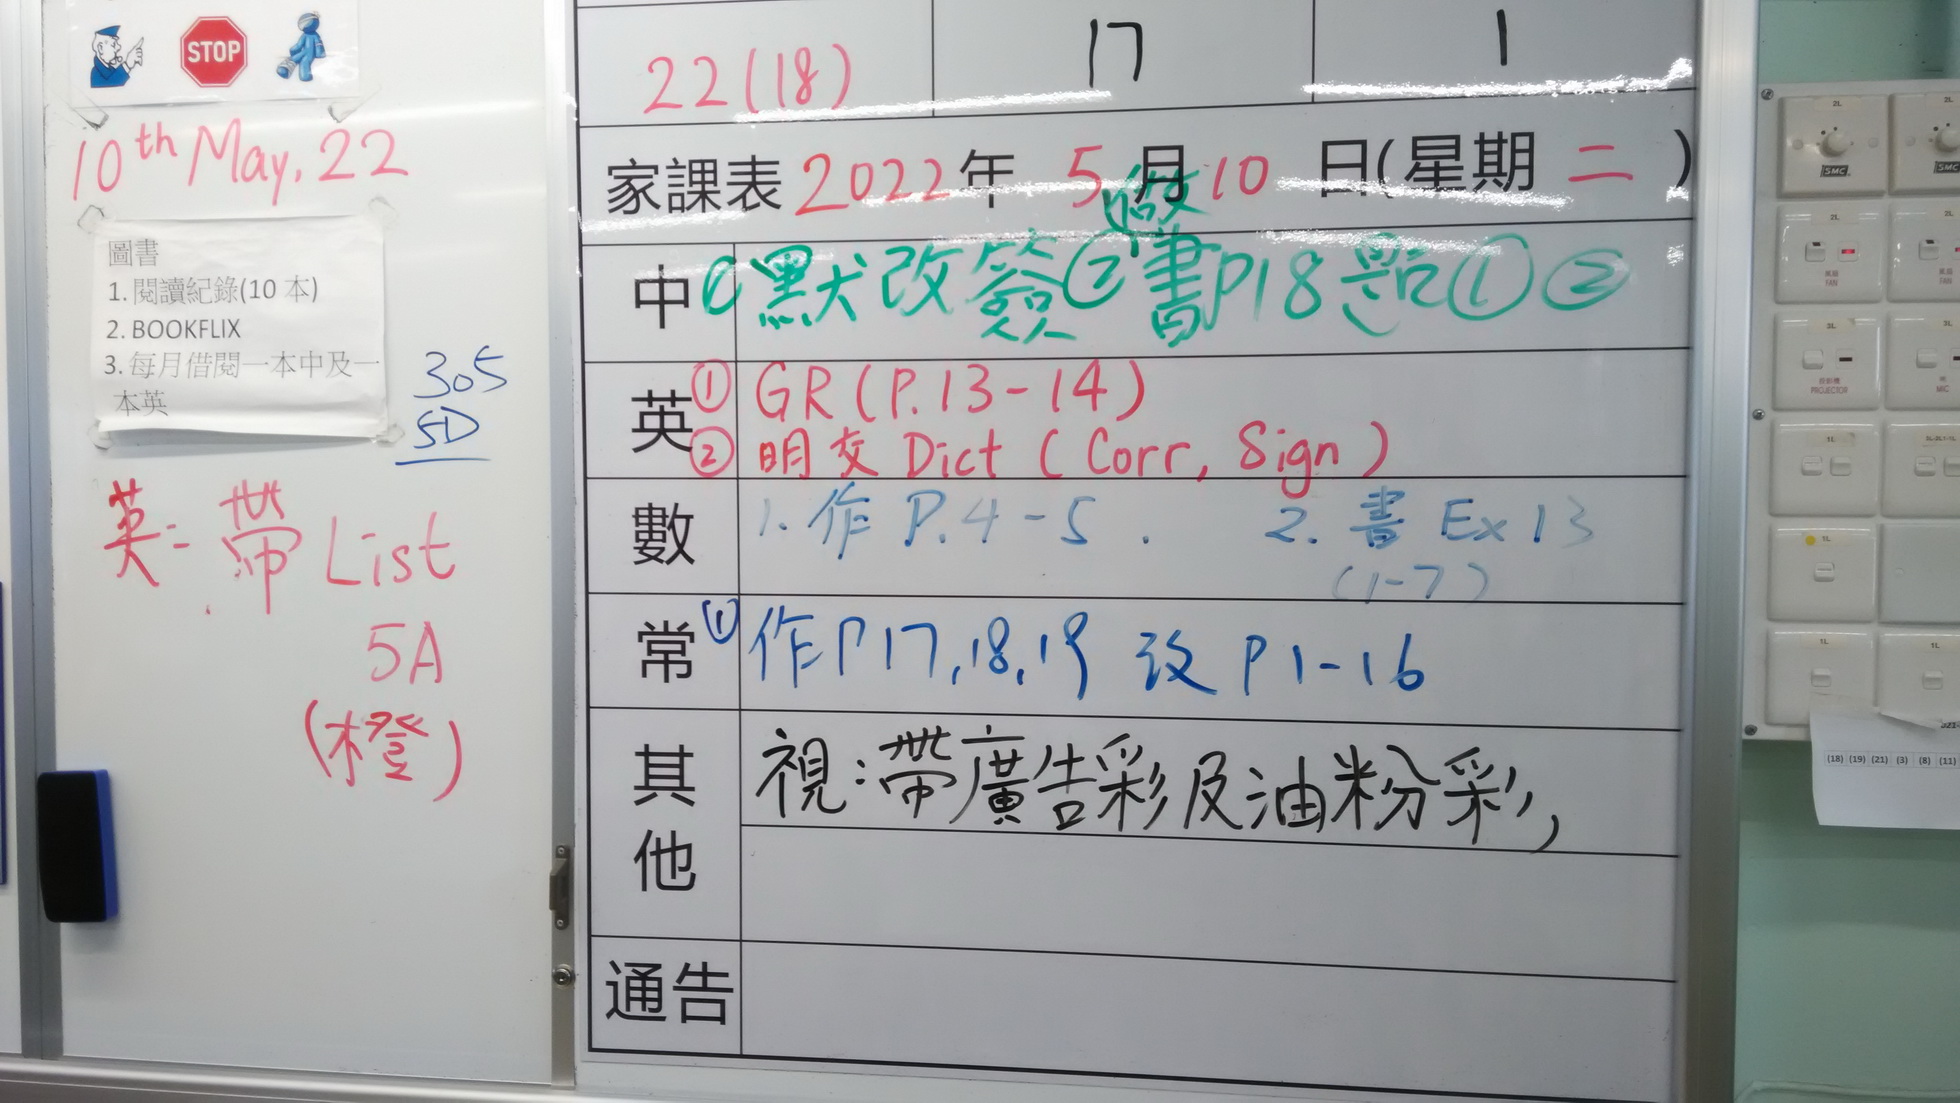 STOP
10th May, 22
圖書
1. 閱讀紀錄(10 本)
2. BOOKFLIX
3. 每月借閱一本中及一
本英
305
5D
英: 帶 List
5A
(橙)
22(18) 17 1
家課表 2022 年 5 月 10 日(星期 二 )
做
中 ① 默改簽 ② 書P18 題 ① ②
英 ① GR (P.13-14)
② 明交 Dict (Corr, Sign)
數 1. 作 P.4-5 . 2. 書 Ex 13
(1-7)
常 ① 作P17,18,19 改 P1-16
其他 視:帶廣告彩及油粉彩,
通告
2L
SMC
2L
SMC
2L
風扇
FAN
2L
風扇
FAN
3L
投影機
PROJECTOR
3L
MIC
1L
1L
1L
1L
(18) (19) (21) (3) (8) (11)